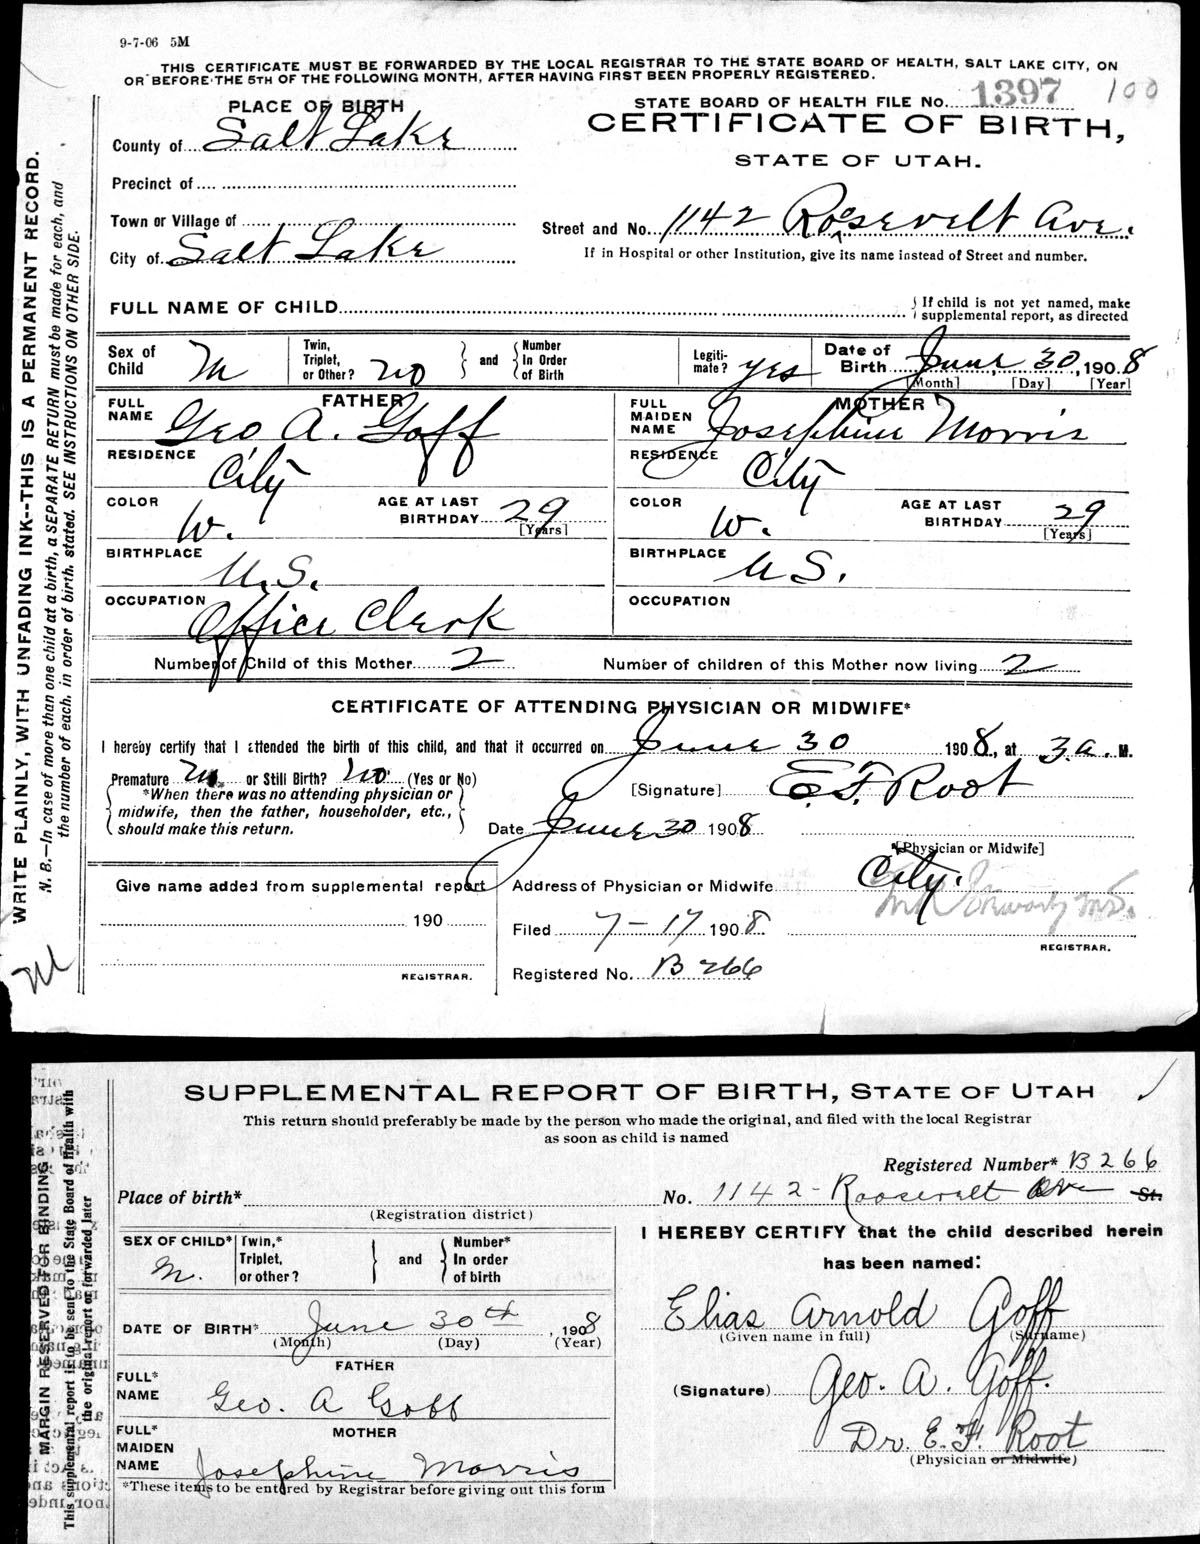 9-7-06 5M
THIS CERTIFICATE MUST BE FORWARDED BY THE LOCAL REGISTRAR TO THE STATE BOARD OF HEALTH, SALT LAKE CITY, ON
OR BEFORE THE 5TH OF THE FOLLOWING MONTH, AFTER HAVING FIRST BEEN PROPERLY REGISTERED.
STATE BOARD OF HEALTH FILE No. 1397 100
PLACE OF BIRTH
CERTIFICATE OF BIRTH,
STATE OF UTAH.
County of Salt Lake
Precinct of
Town or Village of
Street and No. 1142 Roosevelt Ave.
City of Salt Lake
If in Hospital or other Institution, give its name instead of Street and number.
FULL NAME OF CHILD
If child is not yet named, make
supplemental report, as directed
Sex of Child M
Twin, Triplet, or Other? no
and
Number In Order of Birth
Legiti-mate? yes
Date of Birth June 30, 1908
[Month] [Day] [Year]
FATHER
FULL NAME Geo A. Goff
MOTHER
FULL MAIDEN NAME Josephine Morris
RESIDENCE City
RESIDENCE City
COLOR W.
AGE AT LAST BIRTHDAY 29
[Years]
COLOR W.
AGE AT LAST BIRTHDAY 29
[Years]
BIRTHPLACE U.S.
BIRTHPLACE U S.
OCCUPATION Office Clerk
OCCUPATION
Number of Child of this Mother 2
Number of children of this Mother now living 2
CERTIFICATE OF ATTENDING PHYSICIAN OR MIDWIFE*
I hereby certify that I attended the birth of this child, and that it occurred on June 30 1908, at 3 a. M.
Premature no or Still Birth? no (Yes or No)
*When there was no attending physician or
midwife, then the father, householder, etc.,
should make this return.
[Signature] E. F. Root
Date June 30 1908
[Physician or Midwife]
Give name added from supplemental report
190
REGISTRAR.
Address of Physician or Midwife City.
Filed 7-17 1908.
REGISTRAR.
Registered No. B 266
WRITE PLAINLY, WITH UNFADING INK--THIS IS A PERMANENT RECORD.
N. B.—In case of more than one child at a birth, a SEPARATE RETURN must be made for each, and
the number of each, in order of birth, stated. SEE INSTRUCTIONS ON OTHER SIDE.
M
SUPPLEMENTAL REPORT OF BIRTH, STATE OF UTAH
This return should preferably be made by the person who made the original, and filed with the local Registrar
as soon as child is named
Registered Number* B 266
Place of birth*
(Registration district)
No. 1142 - Roosevelt Ave St.
SEX OF CHILD* M.
Twin,* Triplet, or other?
and
Number* In order of birth
I HEREBY CERTIFY that the child described herein
has been named:
DATE OF BIRTH* June 30th, 1908
(Month) (Day) (Year)
Elias Arnold Goff
(Given name in full) (Surname)
FATHER
FULL* NAME Geo. A Goff
(Signature) Geo. A. Goff.
MOTHER
FULL* MAIDEN NAME Josephine Morris
Dr. E. F. Root
(Physician or Midwife)
*These items to be entered by Registrar before giving out this form
MARGIN RESERVED FOR BINDING
This supplemental report is to be sent to the State Board of Health with
the original report or forwarded later